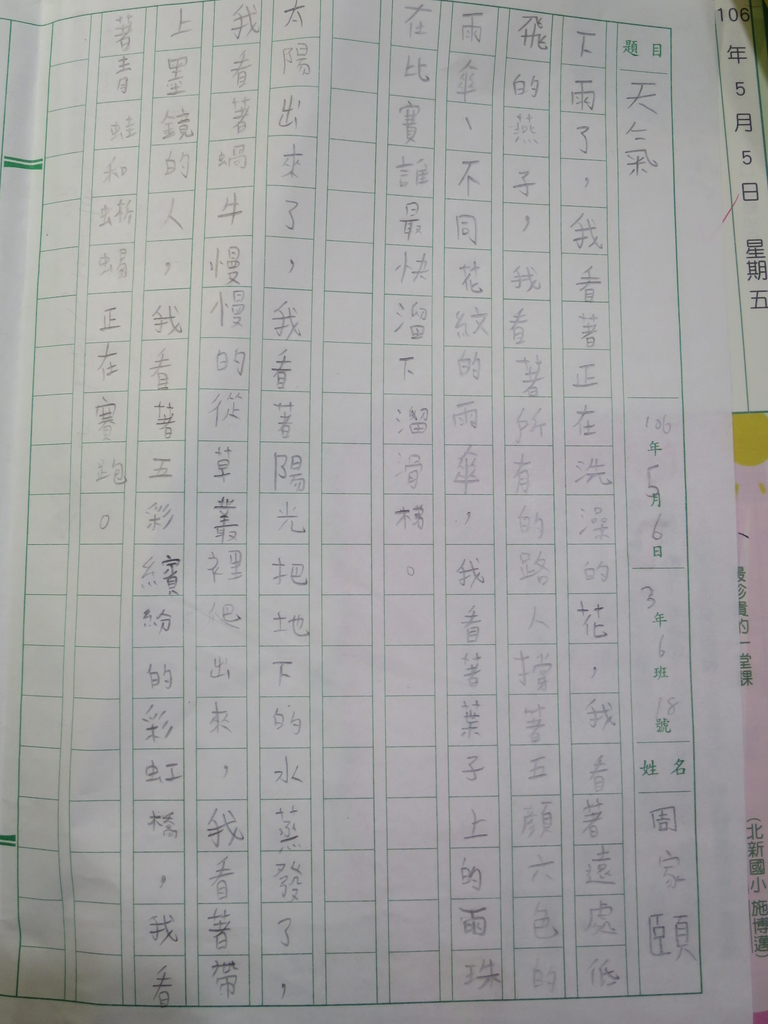 106年5月5日 星期五
最珍貴的一堂課
(北新國小 施博選)
題目 天氣
106年5月6日
3年6班18號
姓名 周家頤
下雨了，我看著正在洗澡的花，我看著遠處低
飛的燕子，我看著所有的路人撐著五顏六色的
雨傘、不同花紋的雨傘，我看著葉子上的雨珠
在比賽誰最快溜下溜滑梯。
太陽出來了，我看著陽光把地下的水蒸發了，
我看著蝸牛慢慢的從草叢裡爬出來，我看著帶
上墨鏡的人，我看著五彩繽紛的彩虹橋，我看
著青蛙和蜥蜴正在賽跑。